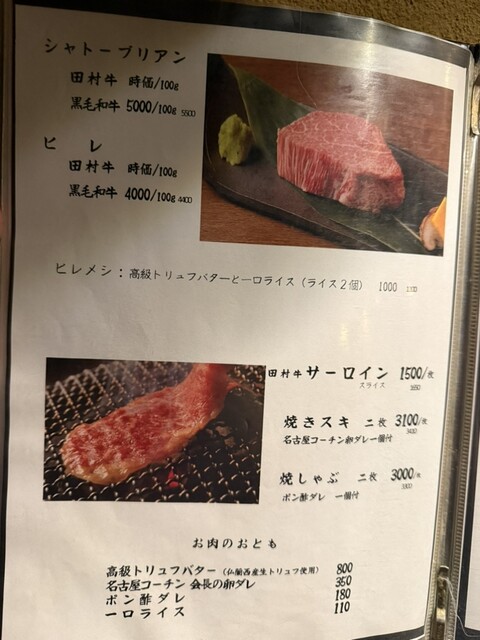 シャトーブリアン
田村牛 時価/100g
黒毛和牛 5000/100g 5500
ヒレ
田村牛 時価/100g
黒毛和牛 4000/100g 4400
ヒレメシ：高級トリュフバターと一口ライス（ライス2個） 1000 1100
田村牛 サーロイン 1500/枚
スライス 1650
焼きスキ 二枚 3100/枚
名古屋コーチン卵ダレ一個付
焼しゃぶ 二枚 3000/枚
ポン酢ダレ 一個付 3300
お肉のおとも
高級トリュフバター（仏蘭西産生トリュフ使用） 800
名古屋コーチン 会長の卵ダレ 350
ポン酢ダレ 180
一口ライス 110